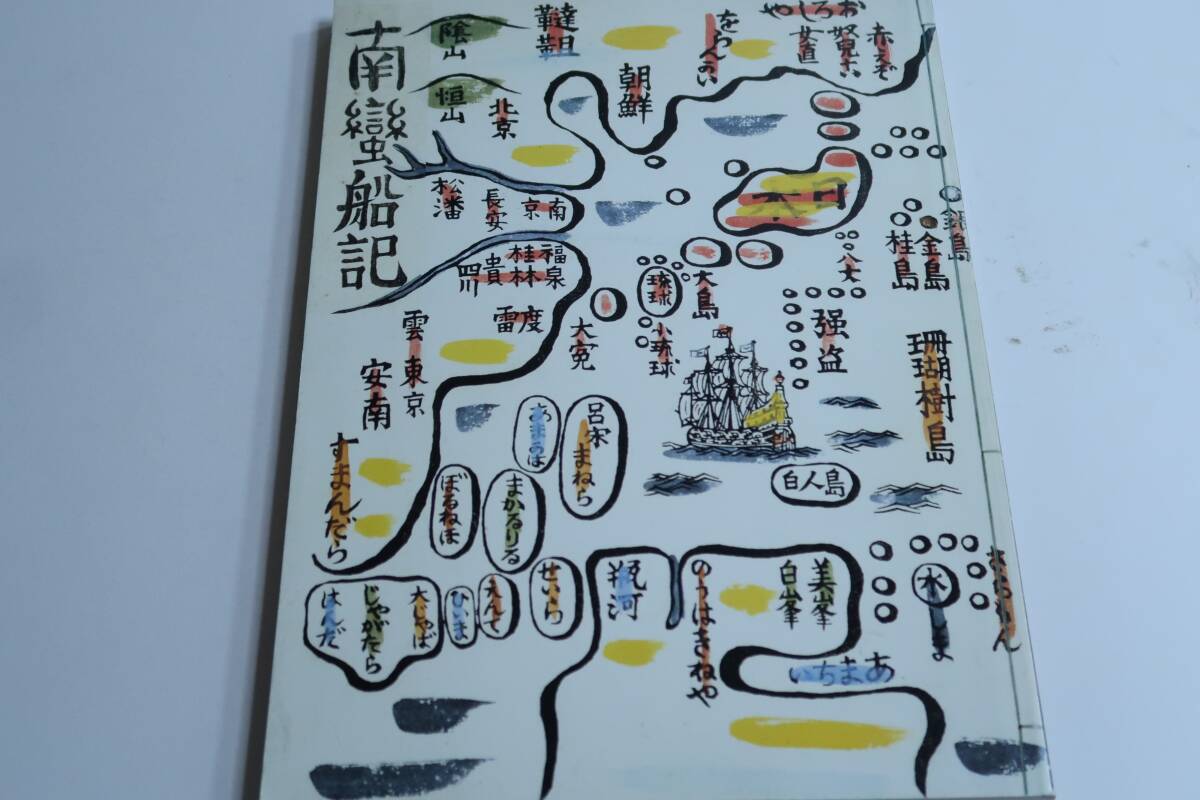 南蠻船記
陰山
恒山
韃靼
北京
朝鮮
をらんかい
おろしや
女直
赤えぞ
松潘
長安
南京
日本
福泉
桂林
貴
四川
雷度
雲東京
安南
大寃
琉球
小琉球
大島
八丈
桂島
金島
銀島
强盗
珊瑚樹島
白人島
呂宋まねら
すまんだら
ぼるねほ
まかるりる
せいら
ひいま
大じやば
じやがたら
はんだ
瓶河
のうはきねや
白峯
美峯
あまちい
水しま